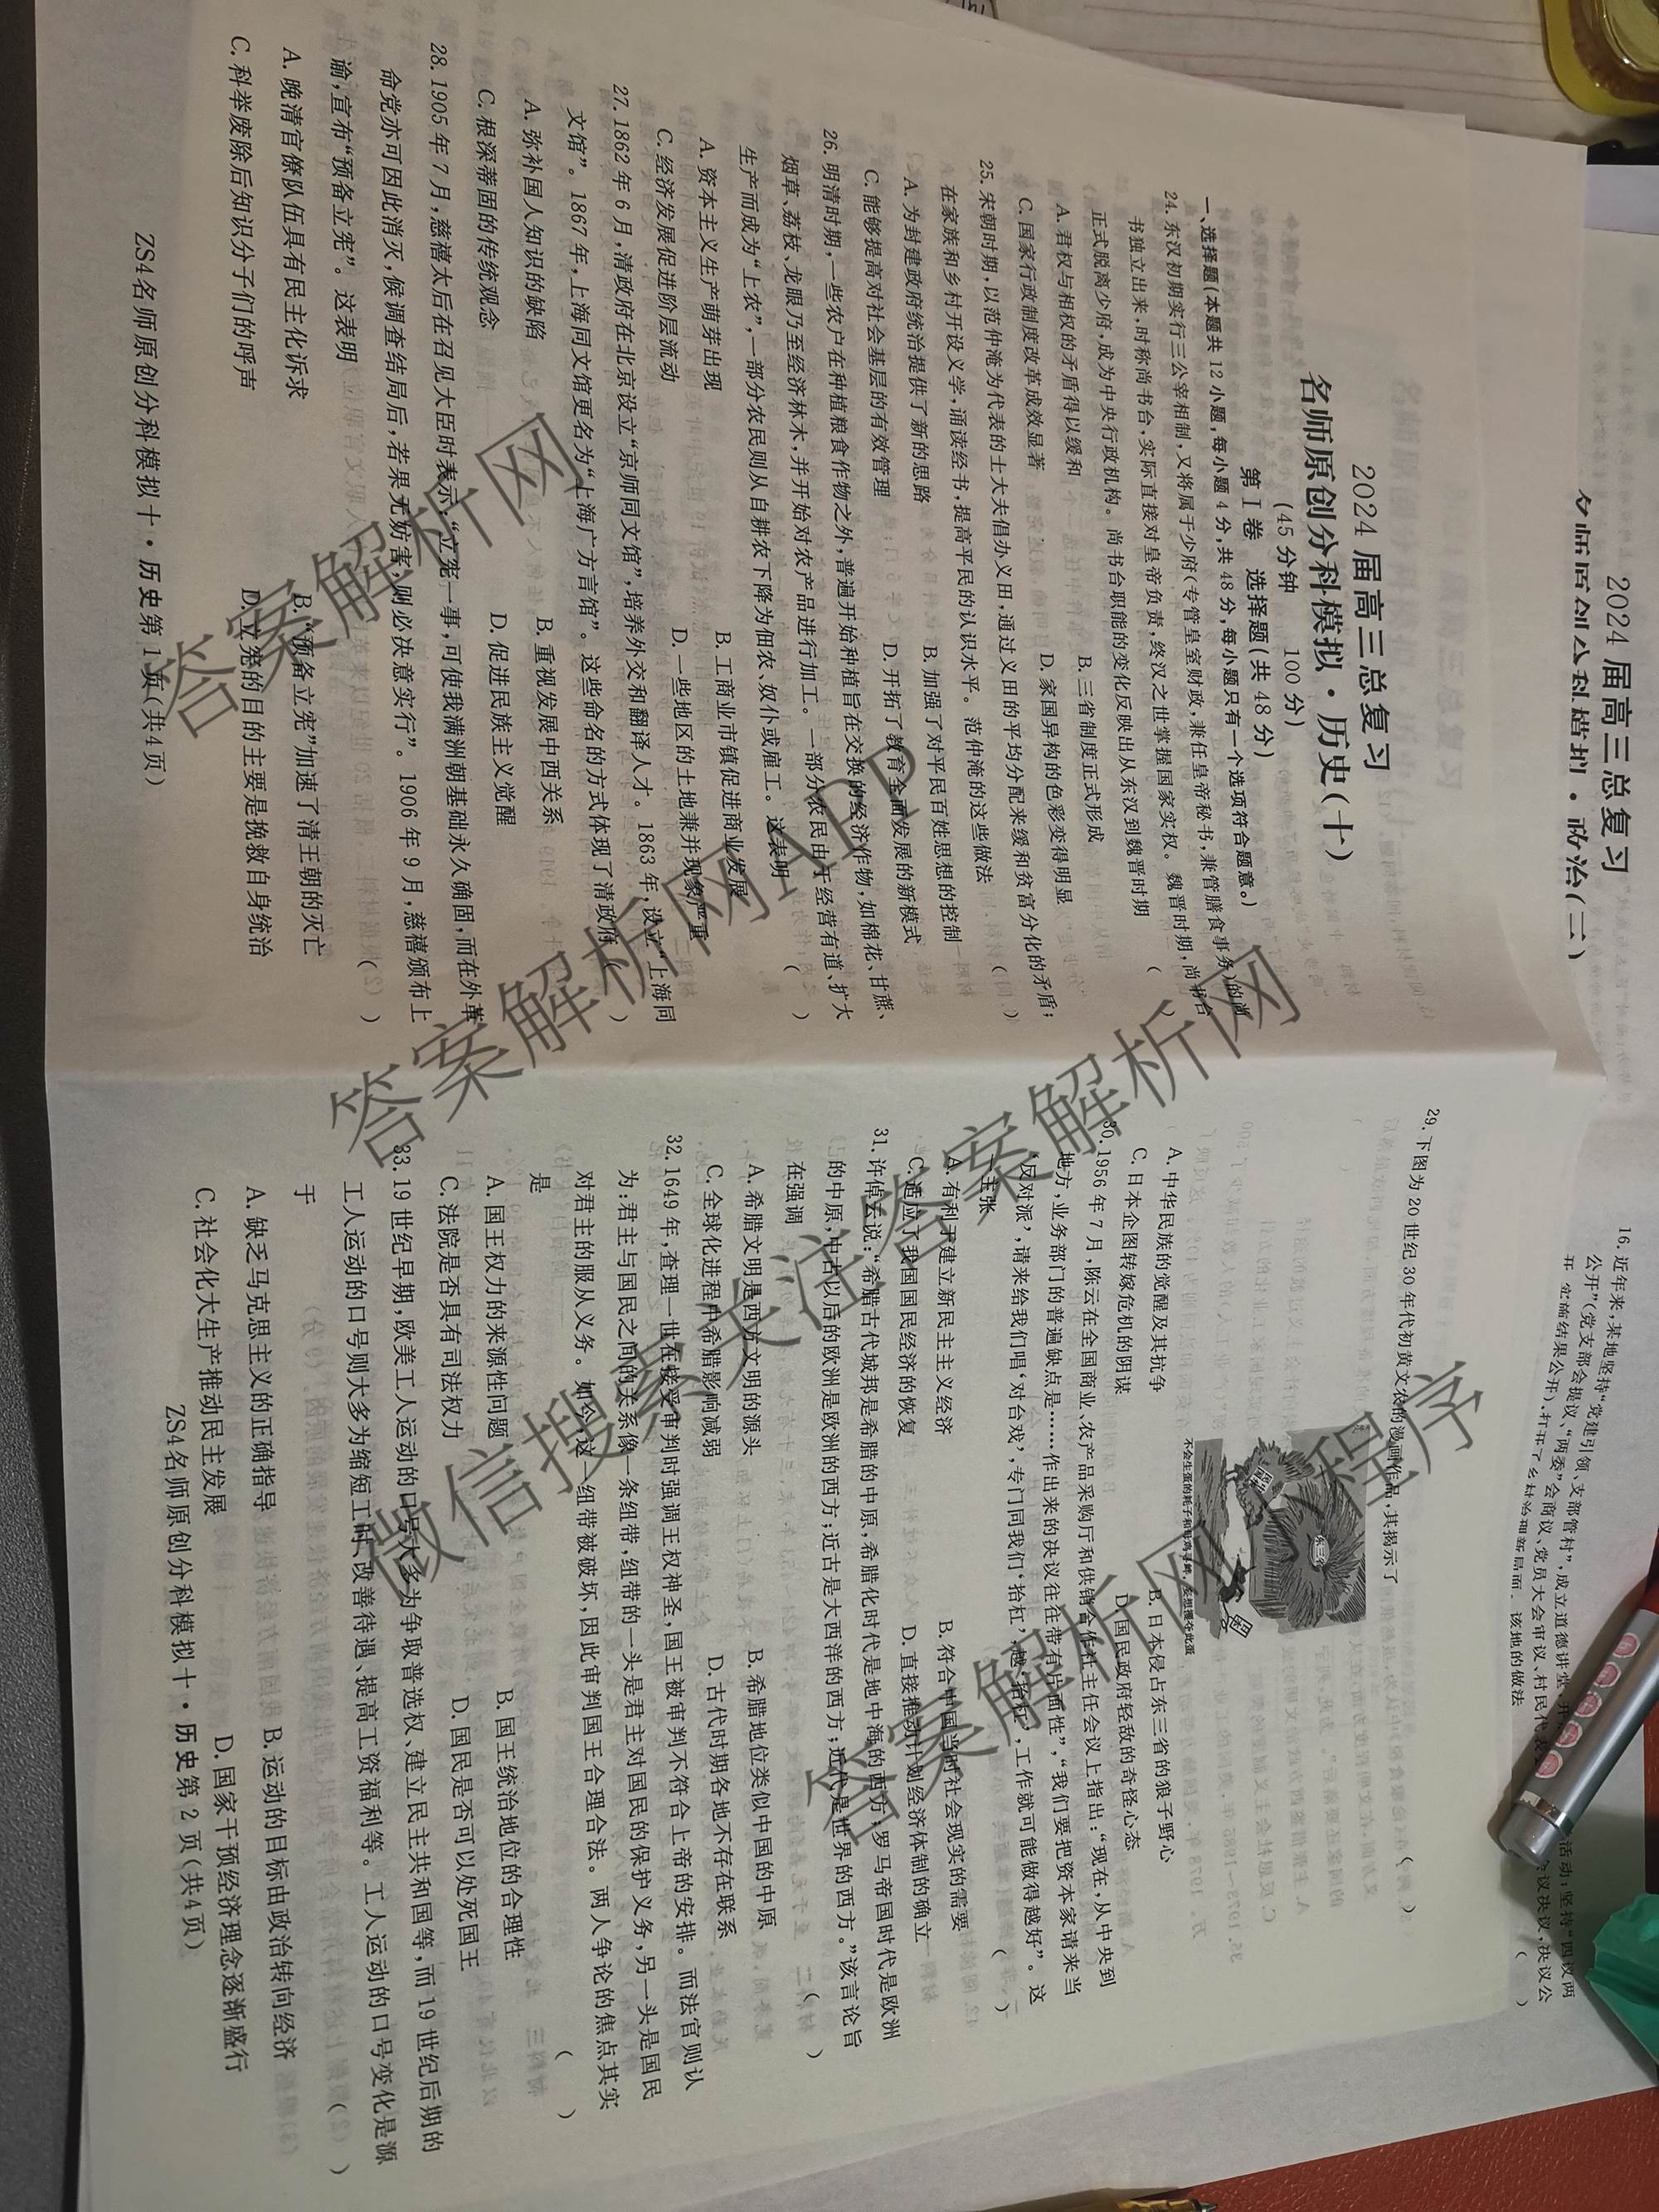 2024届高三总复习
2024届高三总复习
名师原创分科模拟·历史(十)
(45分钟 100分)
第Ⅰ卷 选择题(共48分)
一、选择题(本题共12小题,每小题4分,共48分,每小题只有一个选项符合题意。)
24.东汉初期实行三公宰相制,又将属于少府(专管皇室财政,兼任皇帝秘书,兼管膳食事务)的尚
书独立出来,时称尚书台,实际直接对皇帝负责,终汉之世掌握国家实权。魏晋时期,尚书台
正式脱离少府,成为中央行政机构。尚书台职能的变化反映出从东汉到魏晋时期 ( )
A.君权与相权的矛盾得以缓和 B.三省制度正式形成
C.国家行政制度改革成效显著 D.家国异构的色彩变得明显
25.宋朝时期,以范仲淹为代表的士大夫倡办义田,通过义田的平均分配来缓和贫富分化的矛盾;
在家族和乡村开设义学,诵读经书,提高平民的认识水平。范仲淹的这些做法 ( )
A.为封建政府统治提供了新的思路 B.加强了对平民百姓思想的控制
C.能够提高对社会基层的有效管理 D.开拓了教育全面发展的新模式
26.明清时期,一些农户在种植粮食作物之外,普遍开始种植旨在交换的经济作物,如棉花、甘蔗、
烟草、荔枝、龙眼乃至经济林木,并开始对农产品进行加工。一部分农民由于经营有道、扩大
生产而成为“上农”,一部分农民则从自耕农下降为佃农、奴仆或雇工。这表明 ( )
A.资本主义生产萌芽出现 B.工商业市镇促进商业发展
C.经济发展促进阶层流动 D.一些地区的土地兼并现象严重
27.1862年6月,清政府在北京设立“京师同文馆”,培养外交和翻译人才。1863年,设立“上海同
文馆”。1867年,上海同文馆更名为“上海广方言馆”。这些命名的方式体现了清政府 ( )
A.弥补国人知识的缺陷 B.重视发展中西关系
C.根深蒂固的传统观念 D.促进民族主义觉醒
28.1905年7月,慈禧太后在召见大臣时表示:“立宪一事,可使我满洲朝基础永久确固,而在外革
命党亦可因此消灭,候调查结局后,若果无妨害,则必决意实行”。1906年9月,慈禧颁布上
谕,宣布“预备立宪”。这表明 ( )
A.晚清官僚队伍具有民主化诉求 B.“预备立宪”加速了清王朝的灭亡
C.科举废除后知识分子们的呼声 D.立宪的目的主要是挽救自身统治
ZS4名师原创分科模拟十·历史第1页(共4页)
16.近年来,某地坚持“党建引领、支部管村”,成立道德讲堂,
公开”(党支部会提议、“两委”会商议、党员大会审议、村民代表
29.下图为20世纪30年代初黄文农的漫画作品,其揭示了 ( )
东三省
不会生蛋的耗子和母鸡寻衅,妄想攫夺此蛋
A.中华民族的觉醒及其抗争 B.日本侵占东三省的狼子野心
C.日本企图转嫁危机的阴谋 D.国民政府轻敌的奇怪心态
30.1956年7月,陈云在全国商业、农产品采购厅和供销合作社主任会议上指出:“现在,从中央到
地方,业务部门的普遍缺点是……作出来的决议往往带有片面性”,“我们要把资本家请来当
‘反对派’,请来给我们唱‘对台戏’,专门同我们‘抬杠’,越‘抬杠’,工作就可能做得越好”。这
一主张 ( )
A.有利于建立新民主主义经济 B.符合中国当时社会现实的需要
C.适应了我国国民经济的恢复 D.直接推动计划经济体制的确立
31.许倬云说:“希腊古代城邦是希腊的中原,希腊化时代是地中海的西方;罗马帝国时代是欧洲
的中原,中古以后的欧洲是欧洲的西方;近古是大西洋的西方;近代是世界的西方。”该言论旨
在强调 ( )
A.希腊文明是西方文明的源头 B.希腊地位类似中国的中原
C.全球化进程中希腊影响减弱 D.古代时期各地不存在联系
32.1649年,查理一世在接受审判时强调王权神圣,国王被审判不符合上帝的安排。而法官则认
为:君主与国民之间的关系像一条纽带,纽带的一头是君主对国民的保护义务,另一头是国民
对君主的服从义务。如今,这一纽带被破坏,因此审判国王合理合法。两人争论的焦点其实
是 ( )
A.国王权力的来源性问题 B.国王统治地位的合理性
C.法院是否具有司法权力 D.国民是否可以处死国王
33.19世纪早期,欧美工人运动的口号大多为争取普选权、建立民主共和国等,而19世纪后期的
工人运动的口号则大多为缩短工时、改善待遇、提高工资福利等。工人运动的口号变化是源
于 ( )
A.缺乏马克思主义的正确指导 B.运动的目标由政治转向经济
C.社会化大生产推动民主发展 D.国家干预经济理念逐渐盛行
ZS4名师原创分科模拟十·历史第2页(共4页)
答案解析网
答案解析网APP
微信搜索关注答案解析网
答案解析网小程序